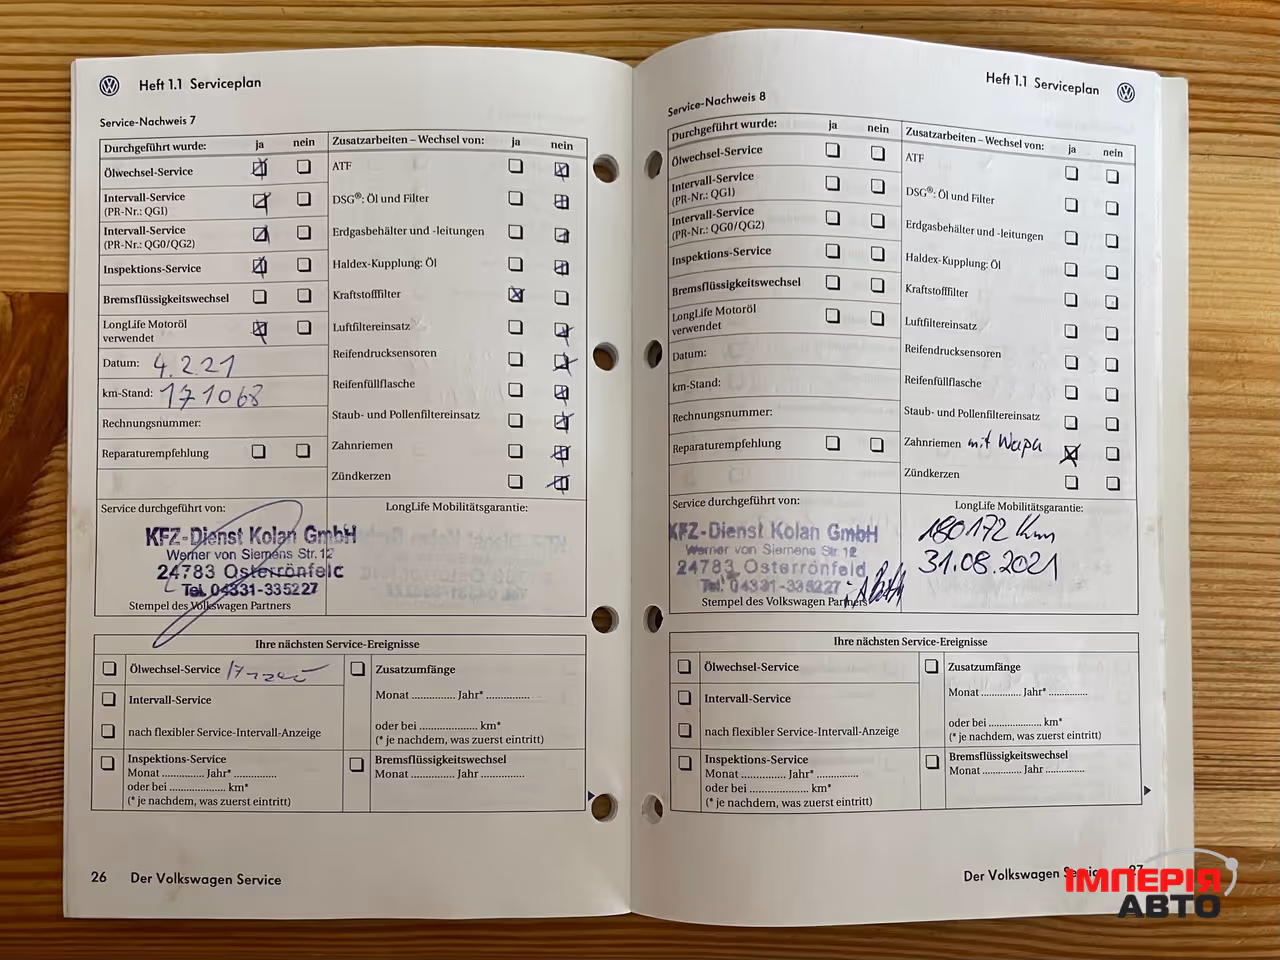 Heft 1.1 Serviceplan
Service-Nachweis 7
Durchgeführt wurde: ja nein
Ölwechsel-Service
Intervall-Service
(PR-Nr.: QG1)
Intervall-Service
(PR-Nr.: QG0/QG2)
Inspektions-Service
Bremsflüssigkeitswechsel
LongLife Motoröl
verwendet
Datum: 4.2.21
km-Stand: 171068
Rechnungsnummer:
Reparaturempfehlung
Zusatzarbeiten – Wechsel von: ja nein
ATF
DSG®: Öl und Filter
Erdgasbehälter und -leitungen
Haldex-Kupplung: Öl
Kraftstofffilter
Luftfiltereinsatz
Reifendrucksensoren
Reifenfüllflasche
Staub- und Pollenfiltereinsatz
Zahnriemen
Zündkerzen
Service durchgeführt von:
KFZ-Dienst Kolan GmbH
Werner von Siemens Str. 12
24783 Osterrönfeld
Tel. 04331-335227
Stempel des Volkswagen Partners
LongLife Mobilitätsgarantie:
Ihre nächsten Service-Ereignisse
Ölwechsel-Service
Intervall-Service
nach flexibler Service-Intervall-Anzeige
Inspektions-Service
Monat ............. Jahr* .............
oder bei .................... km*
(* je nachdem, was zuerst eintritt)
Zusatzumfänge
Monat ............... Jahr* ...............
oder bei .................... km*
(* je nachdem, was zuerst eintritt)
Bremsflüssigkeitswechsel
Monat ............. Jahr ...............
26 Der Volkswagen Service
Heft 1.1 Serviceplan
Service-Nachweis 8
Durchgeführt wurde: ja nein
Ölwechsel-Service
Intervall-Service
(PR-Nr.: QG1)
Intervall-Service
(PR-Nr.: QG0/QG2)
Inspektions-Service
Bremsflüssigkeitswechsel
LongLife Motoröl
verwendet
Datum:
km-Stand:
Rechnungsnummer:
Reparaturempfehlung
Zusatzarbeiten – Wechsel von: ja nein
ATF
DSG®: Öl und Filter
Erdgasbehälter und -leitungen
Haldex-Kupplung: Öl
Kraftstofffilter
Luftfiltereinsatz
Reifendrucksensoren
Reifenfüllflasche
Staub- und Pollenfiltereinsatz
Zahnriemen mit Wapu
Zündkerzen
Service durchgeführt von:
KFZ-Dienst Kolan GmbH
Werner von Siemens Str. 12
24783 Osterrönfeld
Tel. 04331-335227
Stempel des Volkswagen Partners
LongLife Mobilitätsgarantie:
180172 Km
31.08.2021
Ihre nächsten Service-Ereignisse
Ölwechsel-Service
Intervall-Service
nach flexibler Service-Intervall-Anzeige
Inspektions-Service
Monat ............. Jahr* .............
oder bei .................... km*
(* je nachdem, was zuerst eintritt)
Zusatzumfänge
Monat ............. Jahr* .............
oder bei .................... km*
(* je nachdem, was zuerst eintritt)
Bremsflüssigkeitswechsel
Monat ............. Jahr .............
Der Volkswagen Service 27
ІМПЕРІЯ
АВТО